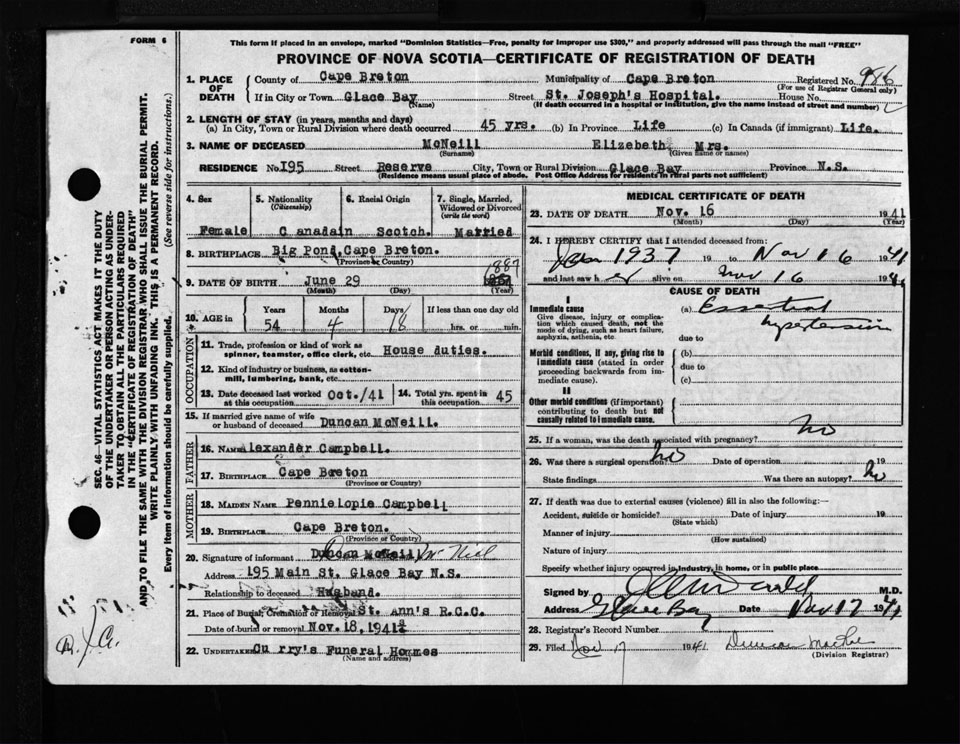 FORM 6
This form if placed in an envelope, marked "Dominion Statistics—Free, penalty for improper use $300," and properly addressed will pass through the mail "FREE"
PROVINCE OF NOVA SCOTIA—CERTIFICATE OF REGISTRATION OF DEATH
1. PLACE OF DEATH County of Cape Breton Municipality of Cape Breton Registered No. 986
(For use of Registrar General only)
If in City or Town Glace Bay Street St. Joseph's Hospital. House No.
(Name) (If death occurred in a hospital or institution, give the name instead of street and number)
2. LENGTH OF STAY (in years, months and days)
(a) In City, Town or Rural Division where death occurred 45 yrs. (b) In Province Life (c) In Canada (if immigrant) Life.
3. NAME OF DECEASED McNeill Elizebeth Mrs.
(Surname) (Given name or names)
RESIDENCE No. 195 Street Reserve City, Town or Rural Division Glace Bay Province N.S.
(Residence means usual place of abode. Post Office Address for residents in rural parts not sufficient)
4. Sex 5. Nationality (Citizenship) 6. Racial Origin 7. Single, Married, Widowed or Divorced (write the word)
Female Canadain Scotch. Married
8. BIRTHPLACE Big Pond, Cape Breton.
(Province or Country)
9. DATE OF BIRTH June 29 1887
(Month) (Day) (Year)
10. AGE in Years Months Days If less than one day old
54 4 18 hrs. or min.
OCCUPATION
11. Trade, profession or kind of work as spinner, teamster, office clerk, etc. House duties.
12. Kind of industry or business, as cotton-mill, lumbering, bank, etc.
13. Date deceased last worked at this occupation Oct./41 14. Total yrs. spent in this occupation 45
15. If married give name of wife or husband of deceased Duncan McNeill.
FATHER
16. Name Alexander Campbell.
17. Birthplace Cape Breton
(Province or Country)
MOTHER
18. Maiden Name Pennielopie Campbell
19. Birthplace Cape Breton.
(Province or Country)
20. Signature of informant Duncan McNeill McNiel
Address 195 Main St. Glace Bay N.S.
Relationship to deceased Husband.
21. Place of Burial, Cremation or Removal St. ann's R.C.C.
Date of burial or removal Nov. 18, 1941
22. Undertaker Curry's Funeral Hommes
(Name and address)
MEDICAL CERTIFICATE OF DEATH
23. DATE OF DEATH Nov. 16 1941
(Month) (Day) (Year)
24. I HEREBY CERTIFY that I attended deceased from:
Jan 1937 19 to Nov 16 1941
and last saw her alive on Nov 16 1941
CAUSE OF DEATH
I
Immediate cause
Give disease, injury or complication which caused death, not the mode of dying, such as heart failure, asphyxia, asthenia, etc.
(a) Essential hypertension
due to
Morbid conditions, if any, giving rise to immediate cause (stated in order proceeding backwards from immediate cause).
(b)
due to
(c)
II
Other morbid conditions (if important) contributing to death but not causally related to immediate cause.
25. If a woman, was the death associated with pregnancy? no
26. Was there a surgical operation? no Date of operation 19
State findings Was there an autopsy? no
27. If death was due to external causes (violence) fill in also the following:—
Accident, suicide or homicide? Date of injury 19
(State which)
Manner of injury
(How sustained)
Nature of injury
Specify whether injury occurred in industry, in home, or in public place
Signed by M.D.
Address Glace Bay Date Nov 17 1941
28. Registrar's Record Number
29. Filed Nov 17 1941 Duncan
(Division Registrar)
SEC. 46—VITAL STATISTICS ACT MAKES IT THE DUTY
OF THE UNDERTAKER OR PERSON ACTING AS UNDERTAKER TO OBTAIN ALL THE PARTICULARS REQUIRED
IN THE "CERTIFICATE OF REGISTRATION OF DEATH"
AND TO FILE THE SAME WITH THE DIVISION REGISTRAR WHO SHALL ISSUE THE BURIAL PERMIT.
WRITE PLAINLY WITH UNFADING INK. THIS IS A PERMANENT RECORD.
Every item of information should be carefully supplied. (See reverse side for instructions.)